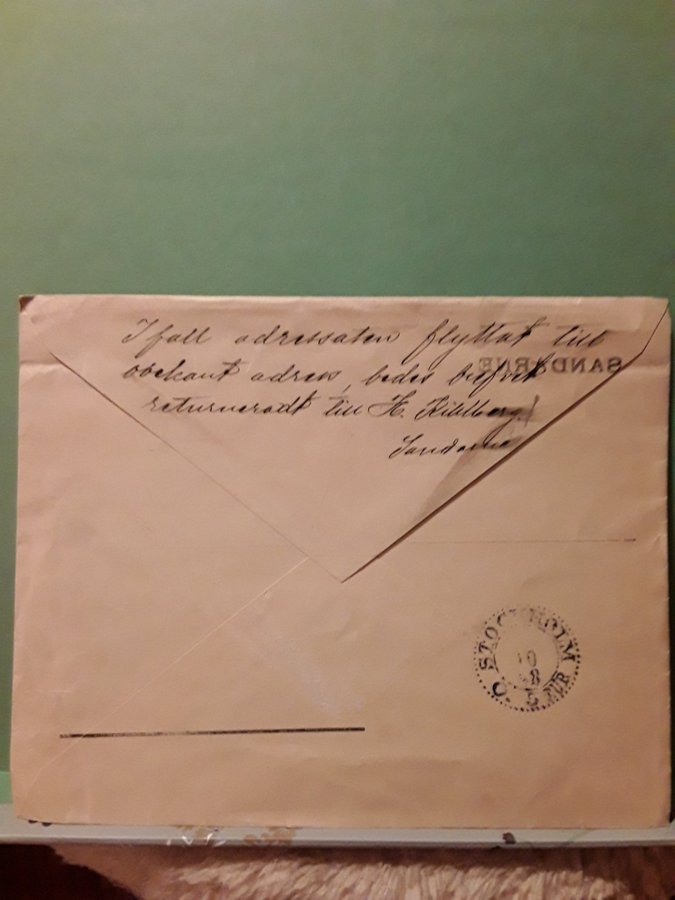 Ifall adressaten flyttat till
obekant adress, bedes brefvet
returneradt till H. Kihlberg
Sandarne
SANDARNE
STOCKHOLM
10